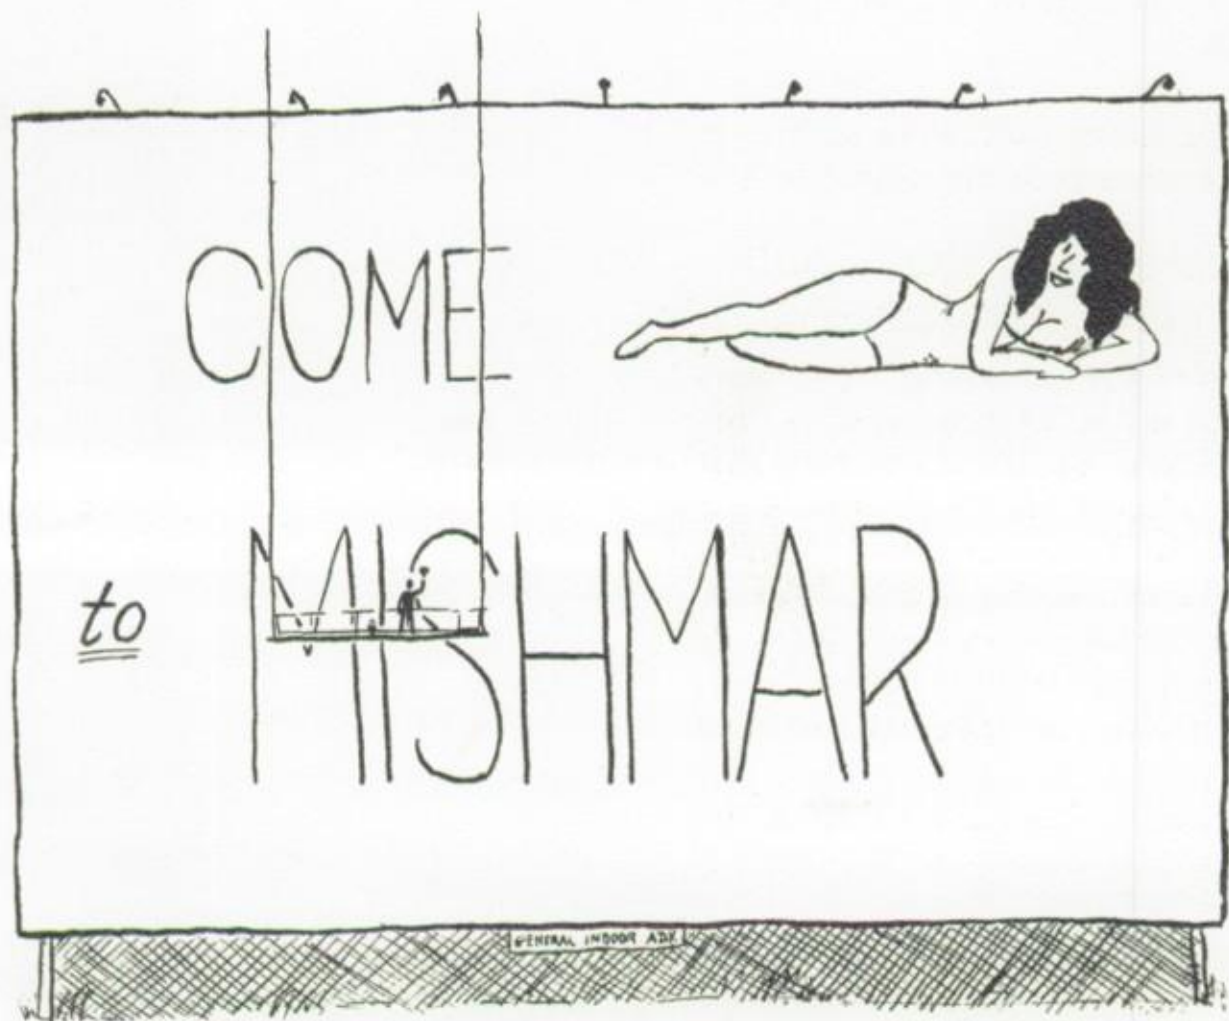 COME
to MISHMAR
GENERAL INDOOR ADV